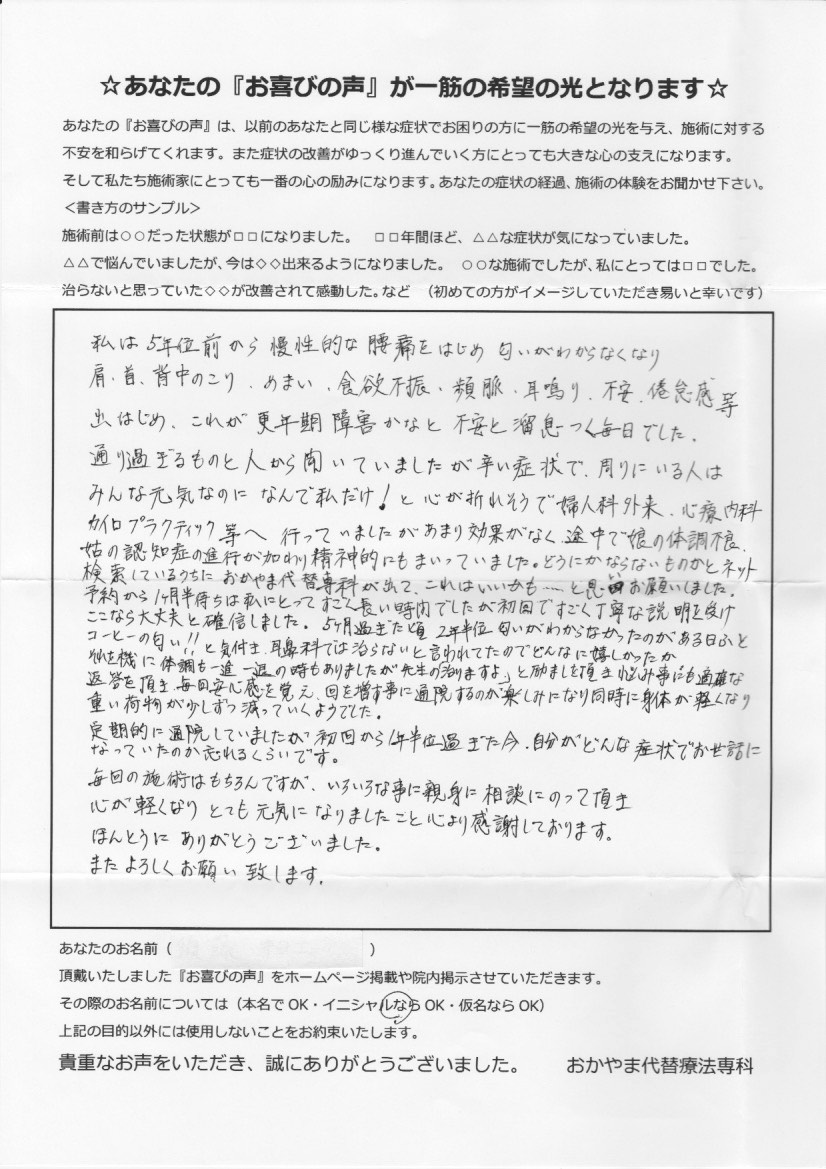 ☆あなたの『お喜びの声』が一筋の希望の光となります☆
あなたの『お喜びの声』は、以前のあなたと同じ様な症状でお困りの方に一筋の希望の光を与え、施術に対する
不安を和らげてくれます。また症状の改善がゆっくり進んでいく方にとっても大きな心の支えになります。
そして私たち施術家にとっても一番の心の励みになります。あなたの症状の経過、施術の体験をお聞かせ下さい。
＜書き方のサンプル＞
施術前は○○だった状態が□□になりました。　□□年間ほど、△△な症状が気になっていました。
△△で悩んでいましたが、今は◇◇出来るようになりました。　○○な施術でしたが、私にとっては□□でした。
治らないと思っていた◇◇が改善されて感動した。など　（初めての方がイメージしていただき易いと幸いです）
私は5年位前から慢性的な腰痛をはじめ匂いがわからなくなり
肩、首、背中のこり、めまい、食欲不振、頻脈、耳鳴り、不安、倦怠感等
出はじめ、これが更年期障害かなと不安と溜息つく毎日でした。
通り過ぎるものと人から聞いていましたが辛い症状で、周りにいる人は
みんな元気なのになんで私だけ！と心が折れそうで婦人科外来、心療内科
カイロプラクティック等へ行っていましたがあまり効果がなく途中で娘の体調不良、
姑の認知症の進行が加わり精神的にもまいっていました。どうにかならないものかとネット
検索しているうちにおかやま代替専科が出て、これはいいかも……と思いお願いしました。
予約から1ヶ月半待ちは私にとってすごく長い時間でしたが初回ですごく丁寧な説明を受け
ここなら大丈夫と確信しました。5ヶ月過ぎた頃2年半位匂いがわからなかったのがある日ふと
コーヒーの匂い!!と気付き、耳鼻科では治らないと言われてたのでどんなに嬉しかったか
それを機に体調も一進一退の時もありましたが先生の治りますよ」と励ましを頂き悩み事にも適確な
返答を頂き毎回安心感を覚え、回を増す事に通院するのが楽しみになり同時に身体が軽くなり
重い荷物が少しずつ減っていくようでした。
定期的に通院していましたが初回から1年半位過ぎた今、自分がどんな症状でお世話に
なっていたのか忘れるくらいです。
毎回の施術はもちろんですが、いろいろな事に親身に相談にのって頂き
心が軽くなりとても元気になりましたこと心より感謝しております。
ほんとうにありがとうございました。
またよろしくお願い致します。
あなたのお名前（　　　　　　　　　　）
頂戴いたしました『お喜びの声』をホームページ掲載や院内掲示させていただきます。
その際のお名前については（本名でOK・イニシャルならOK・仮名ならOK）
上記の目的以外には使用しないことをお約束いたします。
貴重なお声をいただき、誠にありがとうございました。　　おかやま代替療法専科